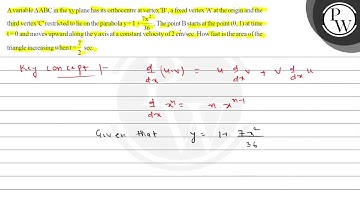 A variable ΔABC in the xy plane has its orthocentre at vertex 'B', a fixed vertex 'A' at the origin and the
third vertex 'C' restricted to lie on the parabola y = 1 + 7x²/36. The point B starts at the point (0,1) at time
t = 0 and moves upward along the y axis at a constant velocity of 2 cm/sec. How fast is the area of the
triangle increasing when t = 7/2 sec.
Key concept :-
d/dx (u·v) = u d/dx v + v d/dx u
d/dx xⁿ = n xⁿ⁻¹
Given that y = 1 + 7x²/36